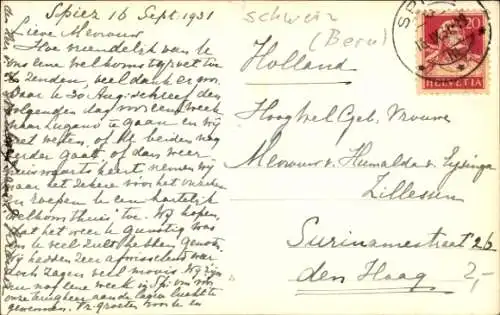 Spiez 16 Sept. 1931
Lieve Mevrouw,
Hoe vriendelijk van U
ons een welkomstgroet te
zenden, veel dank er voor.
Daar U 30 Aug: schreef den
volgenden dag voor een week
naar Lugano te gaan en wij
niet weten, of Uw beiden nog
verder gaat of dan weer
huiswaarts keert, nemen wij
maar het zekere voor het onzekere
en roepen U een hartelijk
welkom thuis toe. Wij hopen,
dat het weer U gunstig was
en U veel zult hebben genoten.
Wij hadden zeer afwisselend weer
doch zagen veel moois. Wij zijn
nu nog eene week in Sp. om voor
onze terugreis aan de lagere lucht te
gewennen. Vr. groeten voor U en
Schweiz
(Bern)
SPIEZ
20
HELVETIA
Holland
Hoogwel Geb. Vrouwe
Mevrouw v. Humalda v. Eysinga
Zillesen
Surinamestraat 26
den Haag
2,-